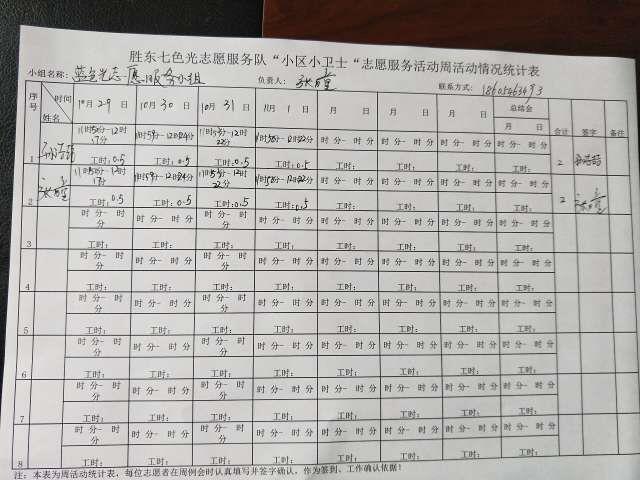 胜东七色光志愿服务队“小区小卫士“志愿服务活动周活动情况统计表
小组名称：蓝色光志愿服务小组 负责人： 联系方式：18605463493
序号 时间 姓名 10月29日 10月30日 10月31日 11月1日 月 日 月 日 月 日 总结会 月 日 合计 签字 备注
1 11时50分-12时17分 11时59分-12时24分 11时55分-12时22分 11时58分-12时22分 时 分- 时 分 时 分- 时 分 时 分- 时 分 时 分- 时 分
工时：0.5 工时：0.5 工时：0.5 工时：0.5 工时： 工时： 工时： 工时： 2
2 11时50分-12时17分 11时59分-12时24分 11时55分-12时22分 11时58分-12时22分 时 分- 时 分 时 分- 时 分 时 分- 时 分 时 分- 时 分
工时：0.5 工时：0.5 工时：0.5 工时：0.5 工时： 工时： 工时： 工时： 2
3 时 分- 时 分 时 分- 时 分 时 分- 时 分 时 分- 时 分 时 分- 时 分 时 分- 时 分 时 分- 时 分 时 分- 时 分
工时： 工时： 工时： 工时： 工时： 工时： 工时： 工时：
4 时 分- 时 分 时 分- 时 分 时 分- 时 分 时 分- 时 分 时 分- 时 分 时 分- 时 分 时 分- 时 分 时 分- 时 分
工时： 工时： 工时： 工时： 工时： 工时： 工时： 工时：
5 时 分- 时 分 时 分- 时 分 时 分- 时 分 时 分- 时 分 时 分- 时 分 时 分- 时 分 时 分- 时 分 时 分- 时 分
工时： 工时： 工时： 工时： 工时： 工时： 工时： 工时：
6 时 分- 时 分 时 分- 时 分 时 分- 时 分 时 分- 时 分 时 分- 时 分 时 分- 时 分 时 分- 时 分 时 分- 时 分
工时： 工时： 工时： 工时： 工时： 工时： 工时： 工时：
7 时 分- 时 分 时 分- 时 分 时 分- 时 分 时 分- 时 分 时 分- 时 分 时 分- 时 分 时 分- 时 分 时 分- 时 分
工时： 工时： 工时： 工时： 工时： 工时： 工时： 工时：
8 时 分- 时 分 时 分- 时 分 时 分- 时 分 时 分- 时 分 时 分- 时 分 时 分- 时 分 时 分- 时 分 时 分- 时 分
工时： 工时： 工时： 工时： 工时： 工时： 工时： 工时：
注：本表为周活动统计表，每位志愿者在周例会时认真填写并签字确认，作为签到、工作确认依据！